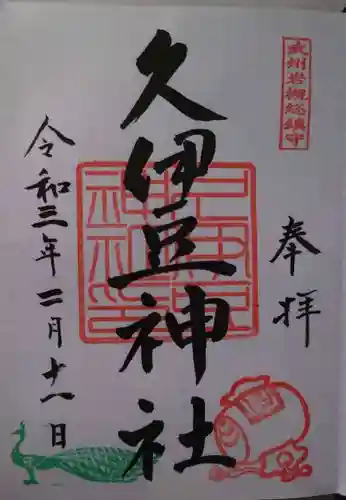 武州岩槻総鎮守
奉拝
久伊豆神社
令和三年二月十一日